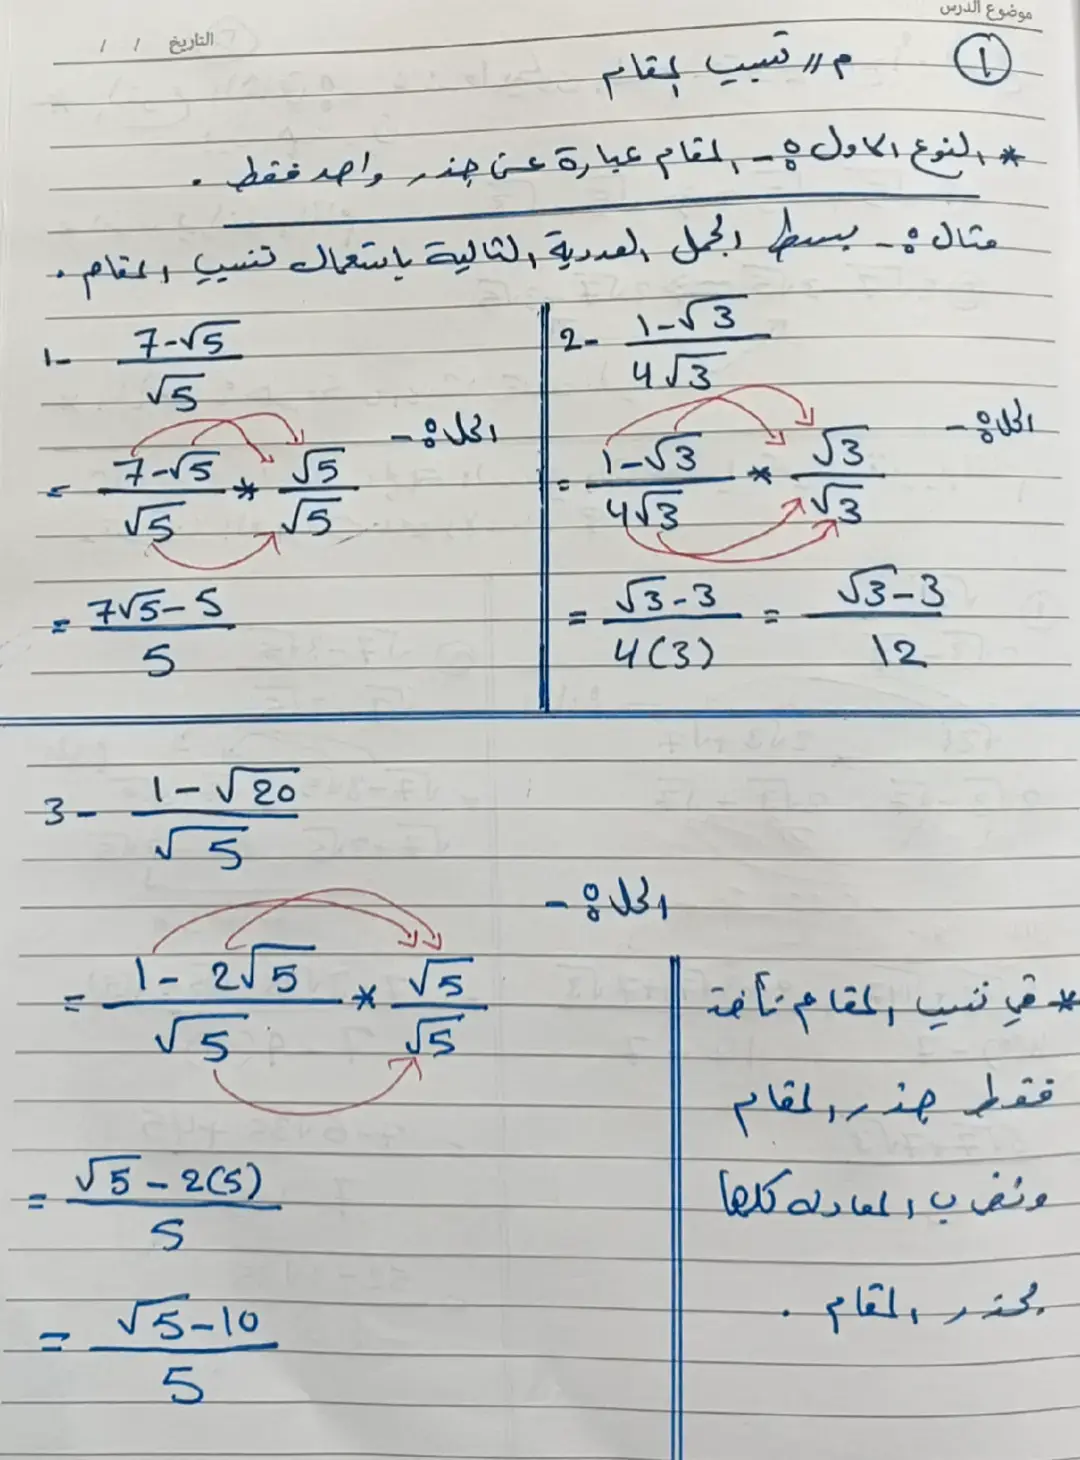 موضوع الدرس
التاريخ / /
① م // تنسيب المقام
* النوع الاول :- المقام عبارة عن جذر واحد فقط .
مثال :- بسط الجمل العددية التالية باستعمال تنسيب المقام .
1- (7-√5)/√5
الحل :-
= (7-√5)/√5 * √5/√5
= (7√5-5)/5
2- (1-√3)/(4√3)
الحل :-
= (1-√3)/(4√3) * √3/√3
= (√3-3)/(4(3)) = (√3-3)/12
3- (1-√20)/√5
الحل :-
= (1-2√5)/√5 * √5/√5
= (√5-2(5))/5
= (√5-10)/5
* في تنسيب المقام نأخذ
فقط جذر المقام
ونضرب المعادلة كلها
بجذر المقام .